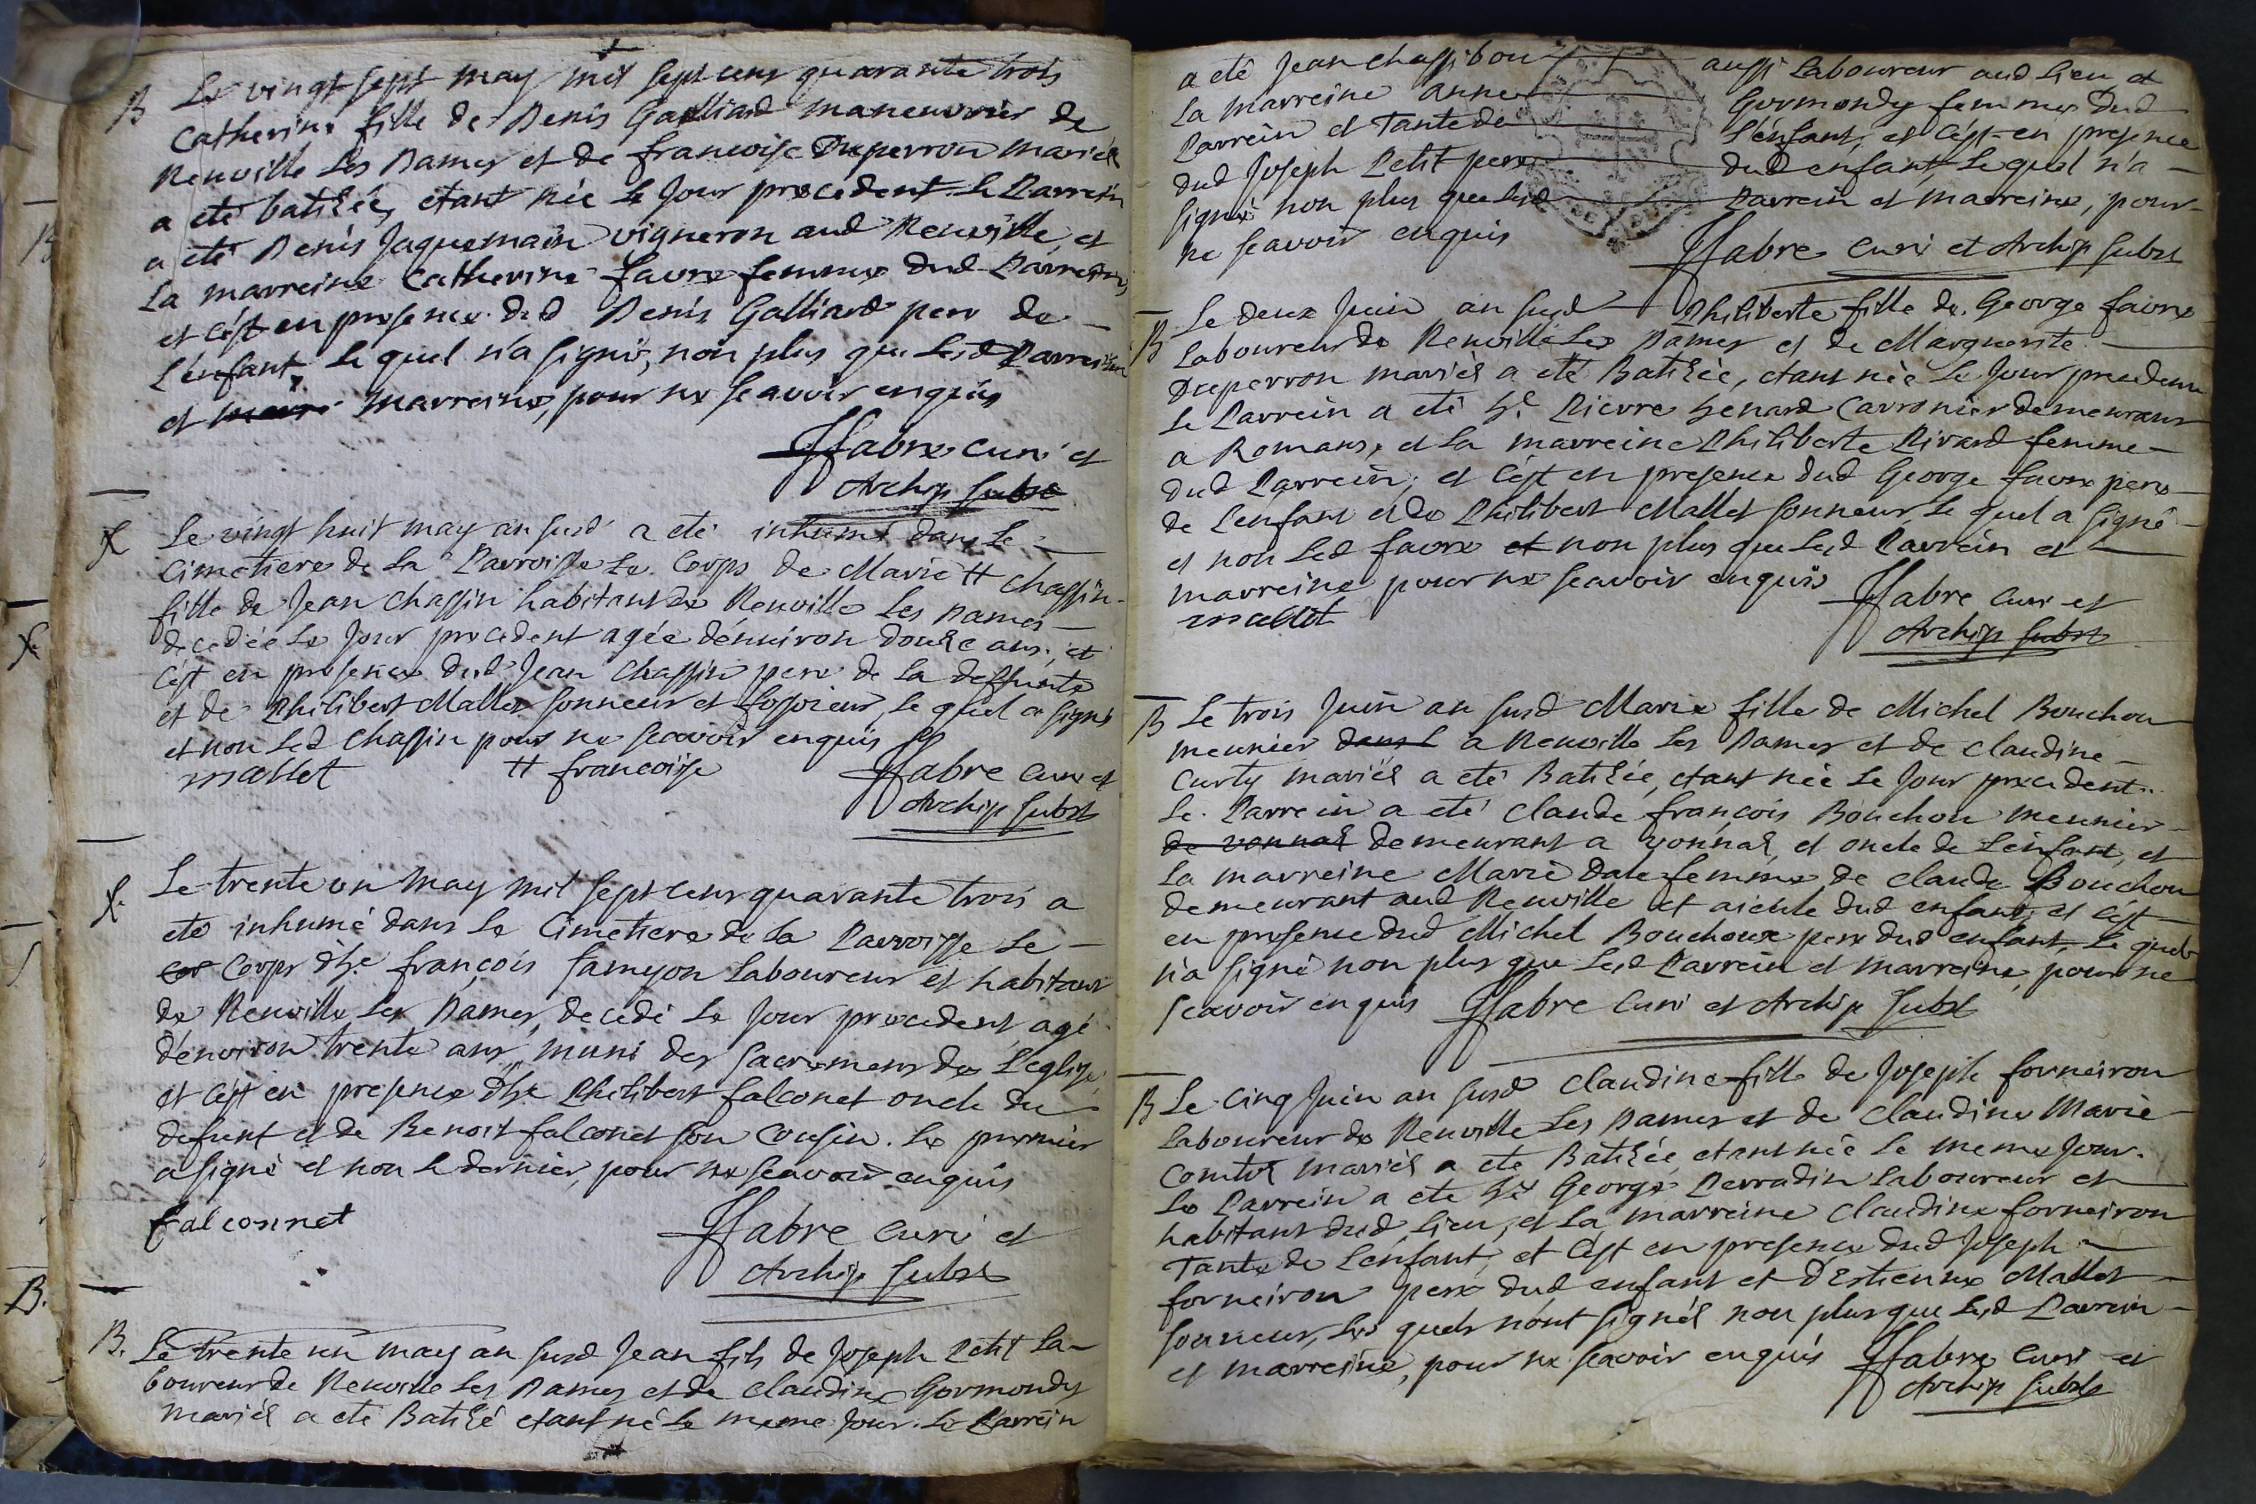 B Le vingt sept may mil sept cens quarante trois
Catherine fille de Denis Galliard maneuvrier de
Neuville Les Dames et de francoise Duperron mariés
a eté batisée, etant née le Jour precedent Le Parrein
a eté Denis Jaquemain vigneron aud Neuville, et
La marreine Catherine favre femme dud Parrein,
et c'est en presence dud Denis Galliard pere de
L'enfant Le quel n'a signé, non plus que Lesd Parrein
et marreine, pour ne scavoir enquis
JFabre curé et
Archip subst
Le vingt huit may an susd a eté inhumé dans Le
Cimetiere de La Parroisse Le Corps de Marie # chassin
fille de Jean chassin habitant de Neuville Les Dames
decedée Le Jour precedent agée d'environ douse ans, et
c'est en presence dud Jean Chassin pere de La deffunte
et de Philibert Mallet sonneur et fossoieur, Le quel a signé
et non Led Chassin pour ne scavoir enquis
mallet # francoise JFabre curé et
Archip subst
Le trente un may mil sept cens quarante trois a
eté inhumé dans Le Cimetiere de La Parroisse Le
Corps d'he françois famyon Laboureur et habitant
de Neuville Les Dames, decedé Le Jour precedent, agé
d'environ trente ans, muni des sacremens de L'eglise,
et c'est en presence d'he Philibert falconet oncle du
defunt et de Benoit falconet son Cousin. Le premier
a signé et non Le dernier, pour ne scavoir enquis
falconnet JFabre curé et
Archip subst
B. Le trente un may an susd Jean fils de Joseph Petit La-
boureur de Neuville Les Dames et de Claudine Gormondy
mariés a eté Batisé etant né Le meme Jour. Le Parrein
a eté Jean chassibou aussi Laboureur aud Lieu et
La marreine anne Gormondy femme dud
Parrein et Tante de L'enfant, et c'est en presence
dud Joseph Petit pere dud enfant, Le quel n'a
signé non plus que Lesd Parrein et marreine, pour
ne scavoir enquis JFabre curé et Archip subst
B Le deux Juin an susd Philiberte fille de George favre
Laboureur de Neuville Les Dames et de Marguerite
Duperron mariés a eté Batisée, etant née Le Jour precedent
Le Parrein a eté he Pierre henard Carronier demeurant
a Romans, et La marreine Philiberte Rivard femme
dud Parrein, et c'est en presence dud George favre pere
de L'enfant et de Philibert Mallet sonneur Le quel a signé
et non Led favre et non plus que Lesd Parrein et
marreine pour ne scavoir enquis JFabre curé et
mallet Archip subst
B Le trois Juin an susd Marie fille de Michel Bouchou
meunier a Neuville Les Dames et de claudine
Curty mariés a eté Batisée, etant née Le Jour precedent
Le Parrein a eté Claude françois Bouchou meunier
de vonnas demeurant a vonnas, et oncle de L'enfant, et
La marreine Marie Date femme de claude Bouchou
demeurant aud Neuville et aieule dud enfant, et c'est
en presence dud Michel Bouchoux pere dud enfant, Le quel
n'a signé non plus que Lesd Parrein et marreine, pour ne
scavoir enquis JFabre curé et Archip subst
B Le cinq Juin an susd claudine fille de Joseph forneiron
Laboureur de Neuville Les Dames et de Claudine Marie
Comtet mariés a eté Batisée etant née Le meme Jour.
Le Parrein a eté he George Perradin Laboureur et
habitant dud Lieu, et La marreine Claudine forneiron
Tante de L'enfant, et c'est en presence dud Joseph
forneiron pere dud enfant et d'Estienne Mallet
sonneur, Les quels n'ont signés non plus que Lesd Parrein
et marreine, pour ne scavoir enquis JFabre curé et
Archip subst
B.